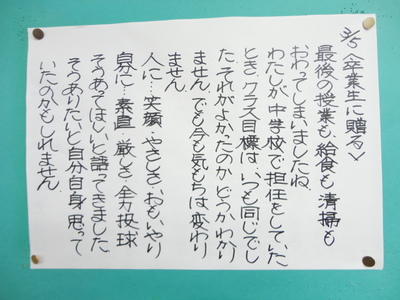 3/5 〈卒業生に贈る〉
最後の授業も、給食も、清掃も
おわってしまいましたね。
わたしが、中学校で担任をしていた
とき、クラス目標は、いつも同じでし
た。それがよかったのかどうかわかり
ません。でも今も気もちは変わり
ません。
人に…笑顔・やさしさ・おもいやり
自分に…素直・厳しさ・全力投球
そうあってほしいと語ってきました。
そうありたいと自分自身、思って
いたのかもしれません。